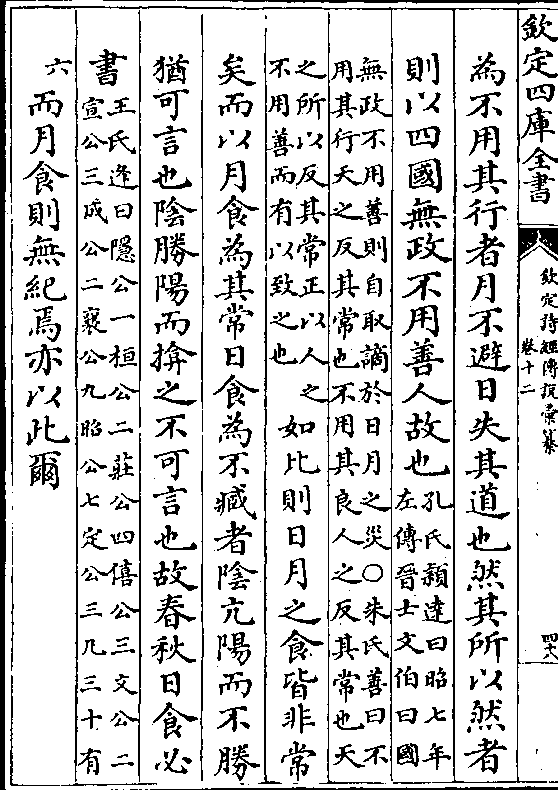 欽定四庫全書
欽定詩經傳說彙纂
卷十二
為不用其行者月不避日失其道也然其所以然者
則以四國無政不用善人故也
孔氏穎達曰昭七年
左傳晉士文伯曰國
無政不用善則自取謫於日月之災○朱氏善曰不
用其行天之反其常也不用其良人之反其常也天
之所以反其常正以人之
不用善而有以致之也
如此則日月之食皆非常
矣而以月食為其常日食為不臧者陰亢陽而不勝
猶可言也陰勝陽而揜之不可言也故春秋日食必
書
王氏逢曰隱公一桓公二莊公四僖公三文公二
宣公三成公二襄公九昭公七定公三凡三十有
六
而月食則無紀焉亦以此爾